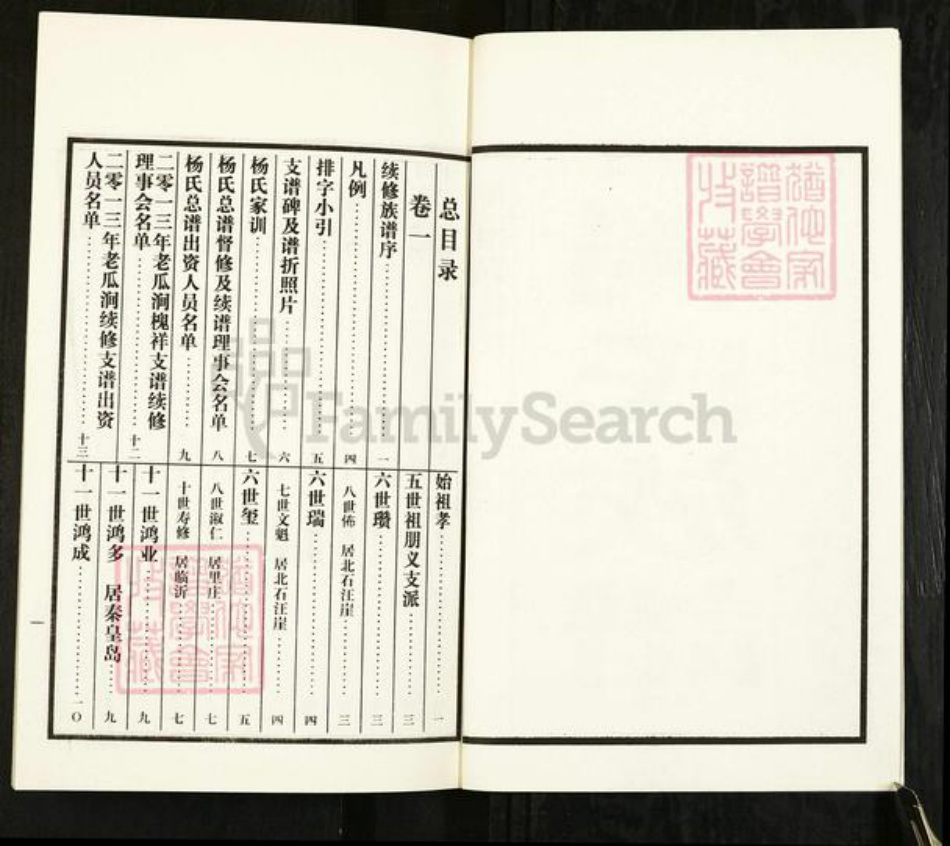 总目录
卷一
续修族谱序…………一
凡例…………四
排字小引…………五
支谱碑及谱折照片…………六
杨氏家训…………七
杨氏总谱督修及续谱理事会名单 八
杨氏总谱出资人员名单…………九
二零一三年老瓜涧槐祥支谱续修
理事会名单…………十二
二零一三年老瓜涧续修支谱出资
人员名单…………十三
始祖孝…………一
五世祖朋义支派…………三
六世瓒…………三
八世佈 居北石汪崖…………三
六世瑞…………四
七世文魁 居北石汪崖…………四
六世玺…………五
八世淑仁 居里庄…………七
十世寿修 居临沂…………七
十一世鸿业…………九
十一世鸿多 居秦皇岛…………九
十一世鸿成…………一〇
一
FamilySearch